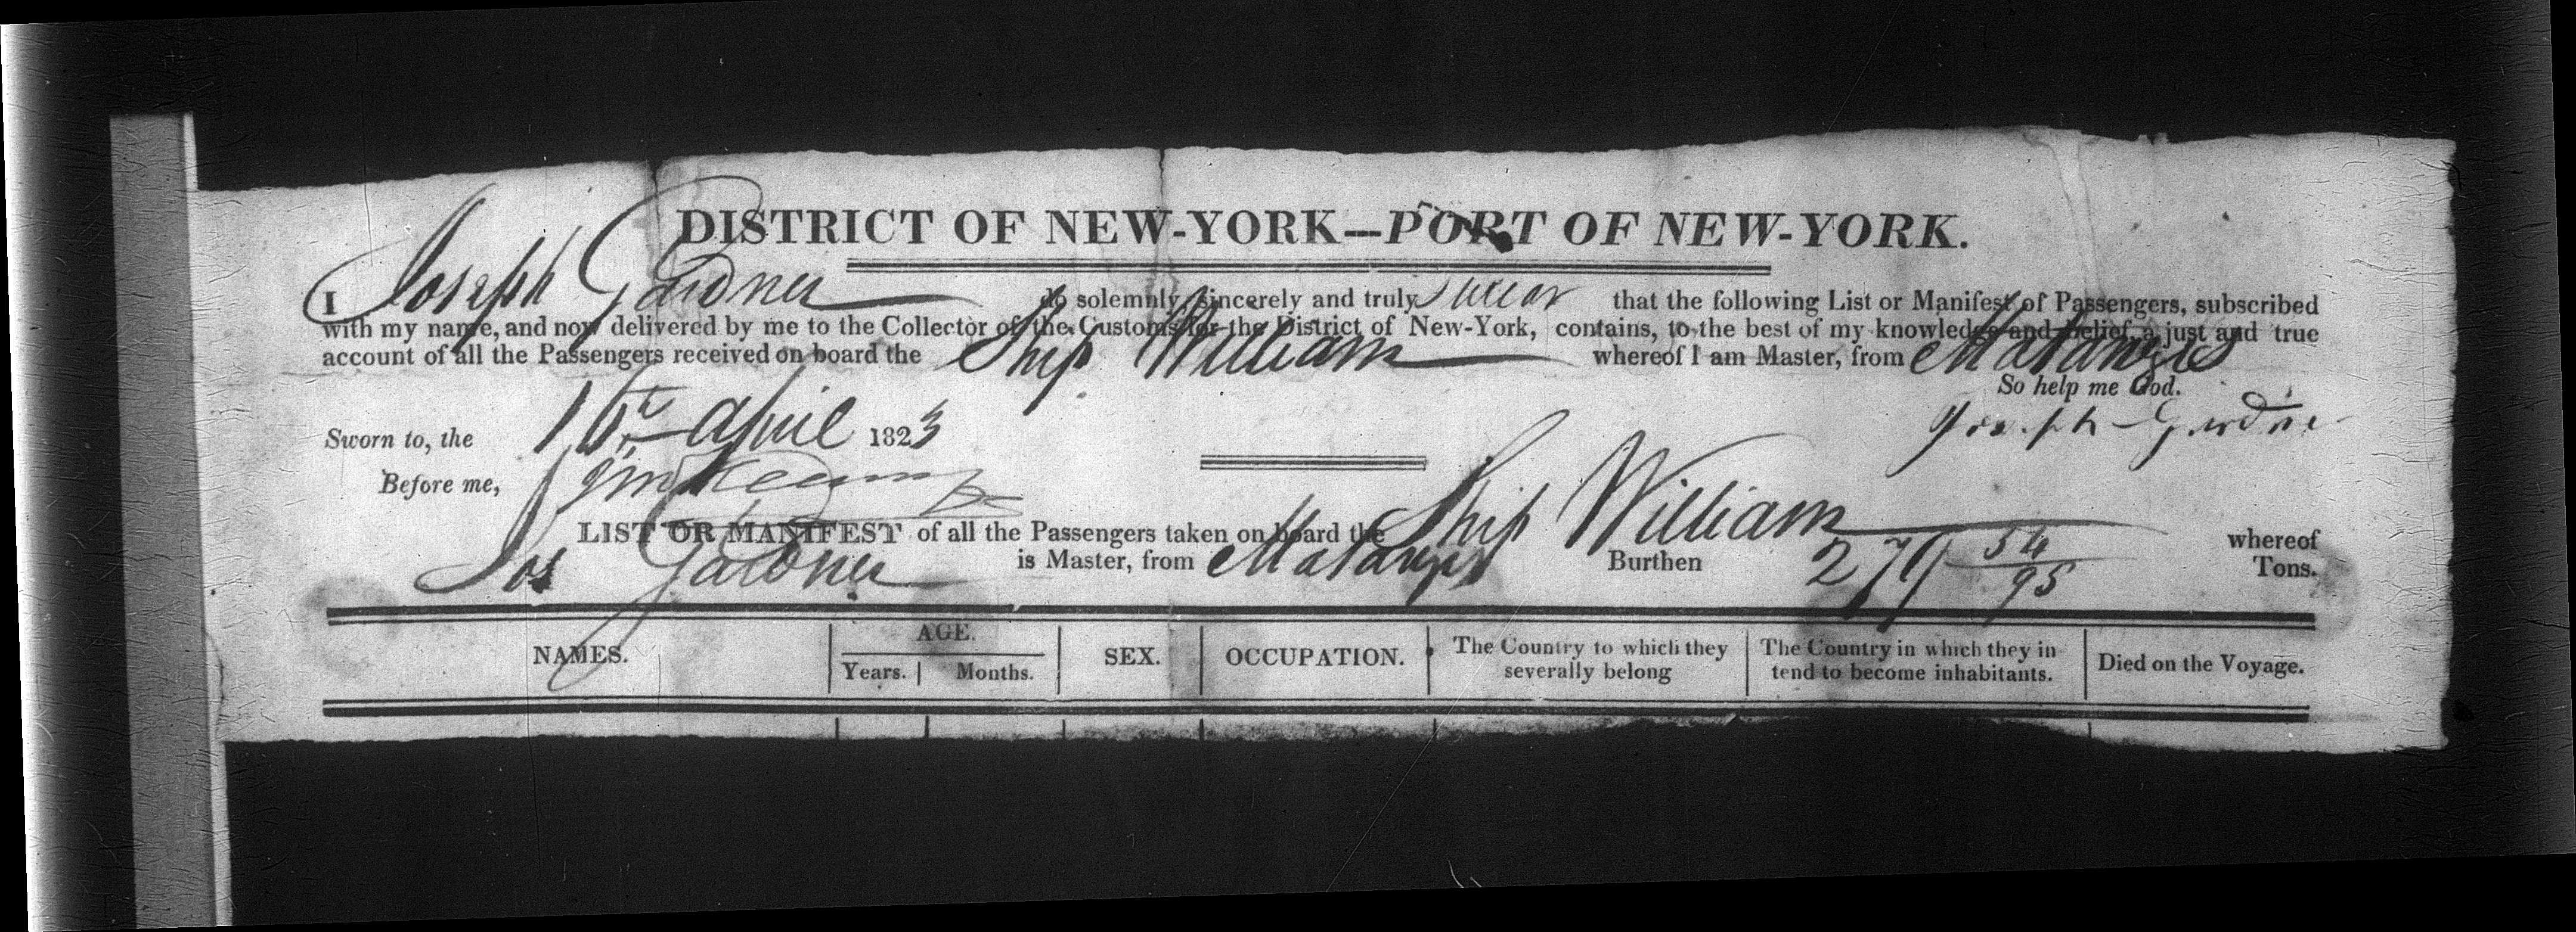 DISTRICT OF NEW-YORK—PORT OF NEW-YORK.
I Joseph Gardner do solemnly, sincerely and truly Swear that the following List or Manifest of Passengers, subscribed
with my name, and now delivered by me to the Collector of the Customs for the District of New-York, contains, to the best of my knowledge and belief, a just and true
account of all the Passengers received on board the Ship William whereof I am Master, from Matanzas
So help me God.
Sworn to, the 16th April 1823
Joseph Gardner
Before me,
LIST OR MANIFEST of all the Passengers taken on board the Ship William whereof
Jos Gardner is Master, from Matanzas Burthen 279 54/95 Tons.
NAMES. AGE. SEX. OCCUPATION. The Country to which they severally belong The Country in which they in tend to become inhabitants. Died on the Voyage.
Years. Months.